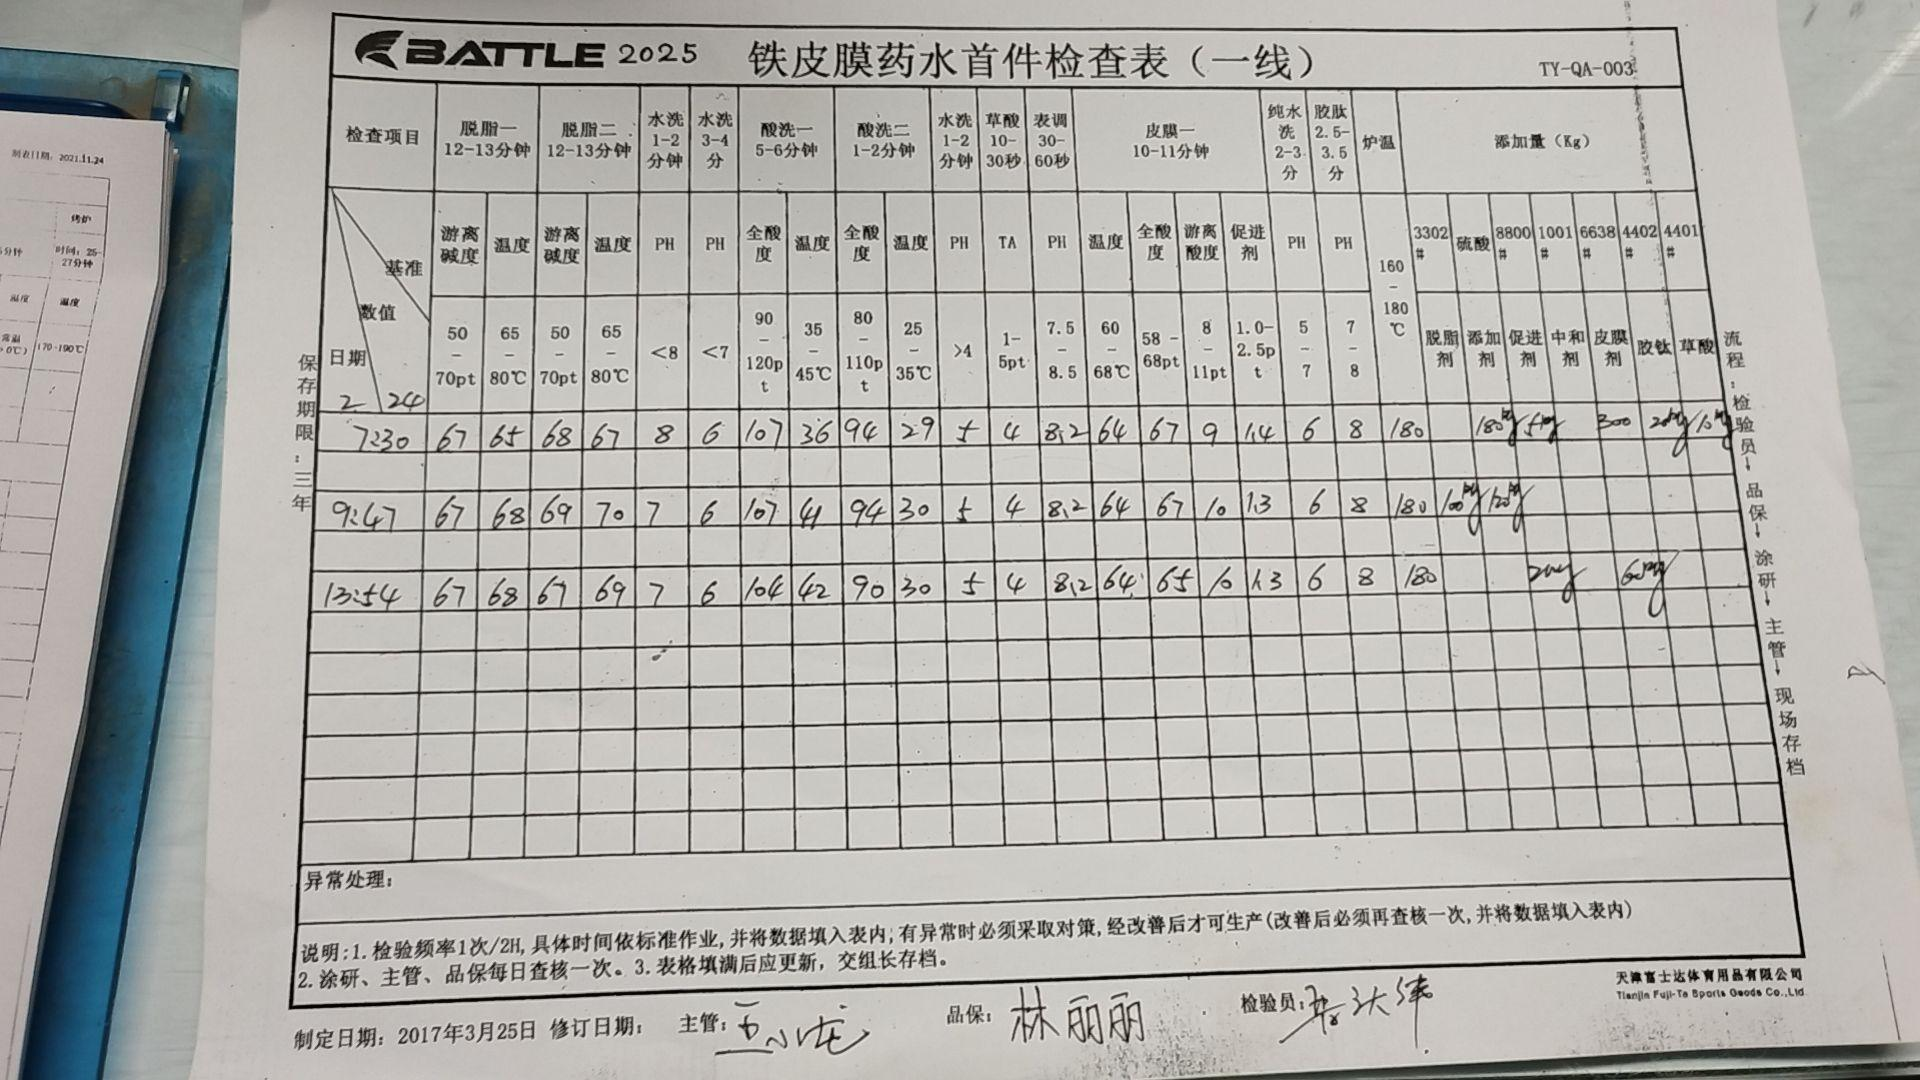 BATTLE 2025 铁皮膜药水首件检查表（一线） TY-QA-003
检查项目 脱脂一 12-13分钟 脱脂二 12-13分钟 水洗 1-2分钟 水洗 3-4分 酸洗一 5-6分钟 酸洗二 1-2分钟 水洗 1-2分钟 草酸 10-30秒 表调 30-60秒 皮膜一 10-11分钟 纯水洗 2-3分 胶肽 2.5-3.5分 炉温 添加量（Kg）
基准 游离碱度 温度 游离碱度 温度 PH PH 全酸度 温度 全酸度 温度 PH TA PH 温度 全酸度 游离酸度 促进剂 PH PH 160-180℃ 3302# 硫酸 8800# 1001# 6638# 4402# 4401#
数值 日期 2 24 50-70pt 65-80℃ 50-70pt 65-80℃ <8 <7 90-120pt 35-45℃ 80-110pt 25-35℃ >4 1-5pt 7.5-8.5 60-68℃ 58-68pt 8-11pt 1.0-2.5pt 5-7 7-8 脱脂剂 添加剂 促进剂 中和剂 皮膜剂 胶钛 草酸
7:30 67 65 68 67 8 6 107 36 94 29 5 4 8.2 64 67 9 1.4 6 8 180 180kg 5kg 300 20kg 10kg
9:47 67 68 69 70 7 6 107 41 94 30 5 4 8.2 64 67 10 1.3 6 8 180 100kg 120kg
13:54 67 68 67 69 7 6 104 42 90 30 5 4 8.2 64 65 10 1.3 6 8 180 2kg 60kg
异常处理：
说明:1.检验频率1次/2H,具体时间依标准作业,并将数据填入表内;有异常时必须采取对策,经改善后才可生产(改善后必须再查核一次,并将数据填入表内)
2.涂研、主管、品保每日查核一次。3.表格填满后应更新，交组长存档。
天津富士达体育用品有限公司
Tianjin Fuji-Ta Sports Goods Co.,Ltd
制定日期：2017年3月25日 修订日期： 主管： 品保：林丽丽 检验员：
保存期限：三年
流程：检验员→品保→涂研→主管→现场存档
制表日期：2021.11.24
烤炉
分钟 时间：25-27分钟
温度 温度
常温 170-190℃